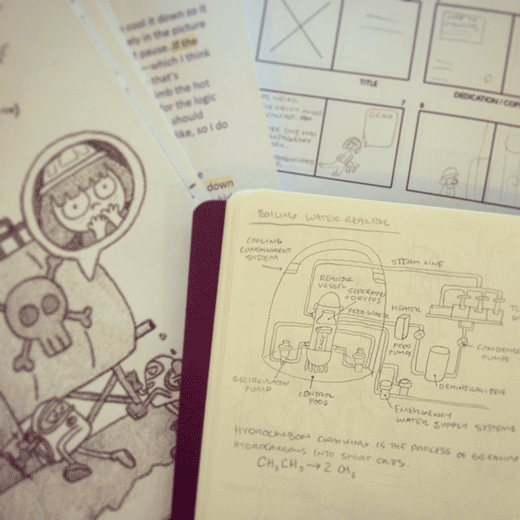 cool it down so it
ely in the picture
pause. If the
which I think
that's
imb the hot
for the logic
should
like, so I do
down
TITLE
DEDICATION / COP
7
8
GEAR!
BOILING WATER REACTOR
COOLING
CONTAINMENT
SYSTEM
STEAM LINE
REACTOR
VESSEL
FEED WATER
HEATER
FEED
PUMPS
CONDENSE
PUMPS
DEMINERALIZER
RECIRCULATION
PUMP
CONTROL
RODS
EMERGENCY
WATER SUPPLY SYSTEMS
HYDROCARBON CRACKING IS THE PROCESS OF BREAKING
HYDROCARBONS INTO SHORT ONES.
CH₃CH₃→2 CH₃